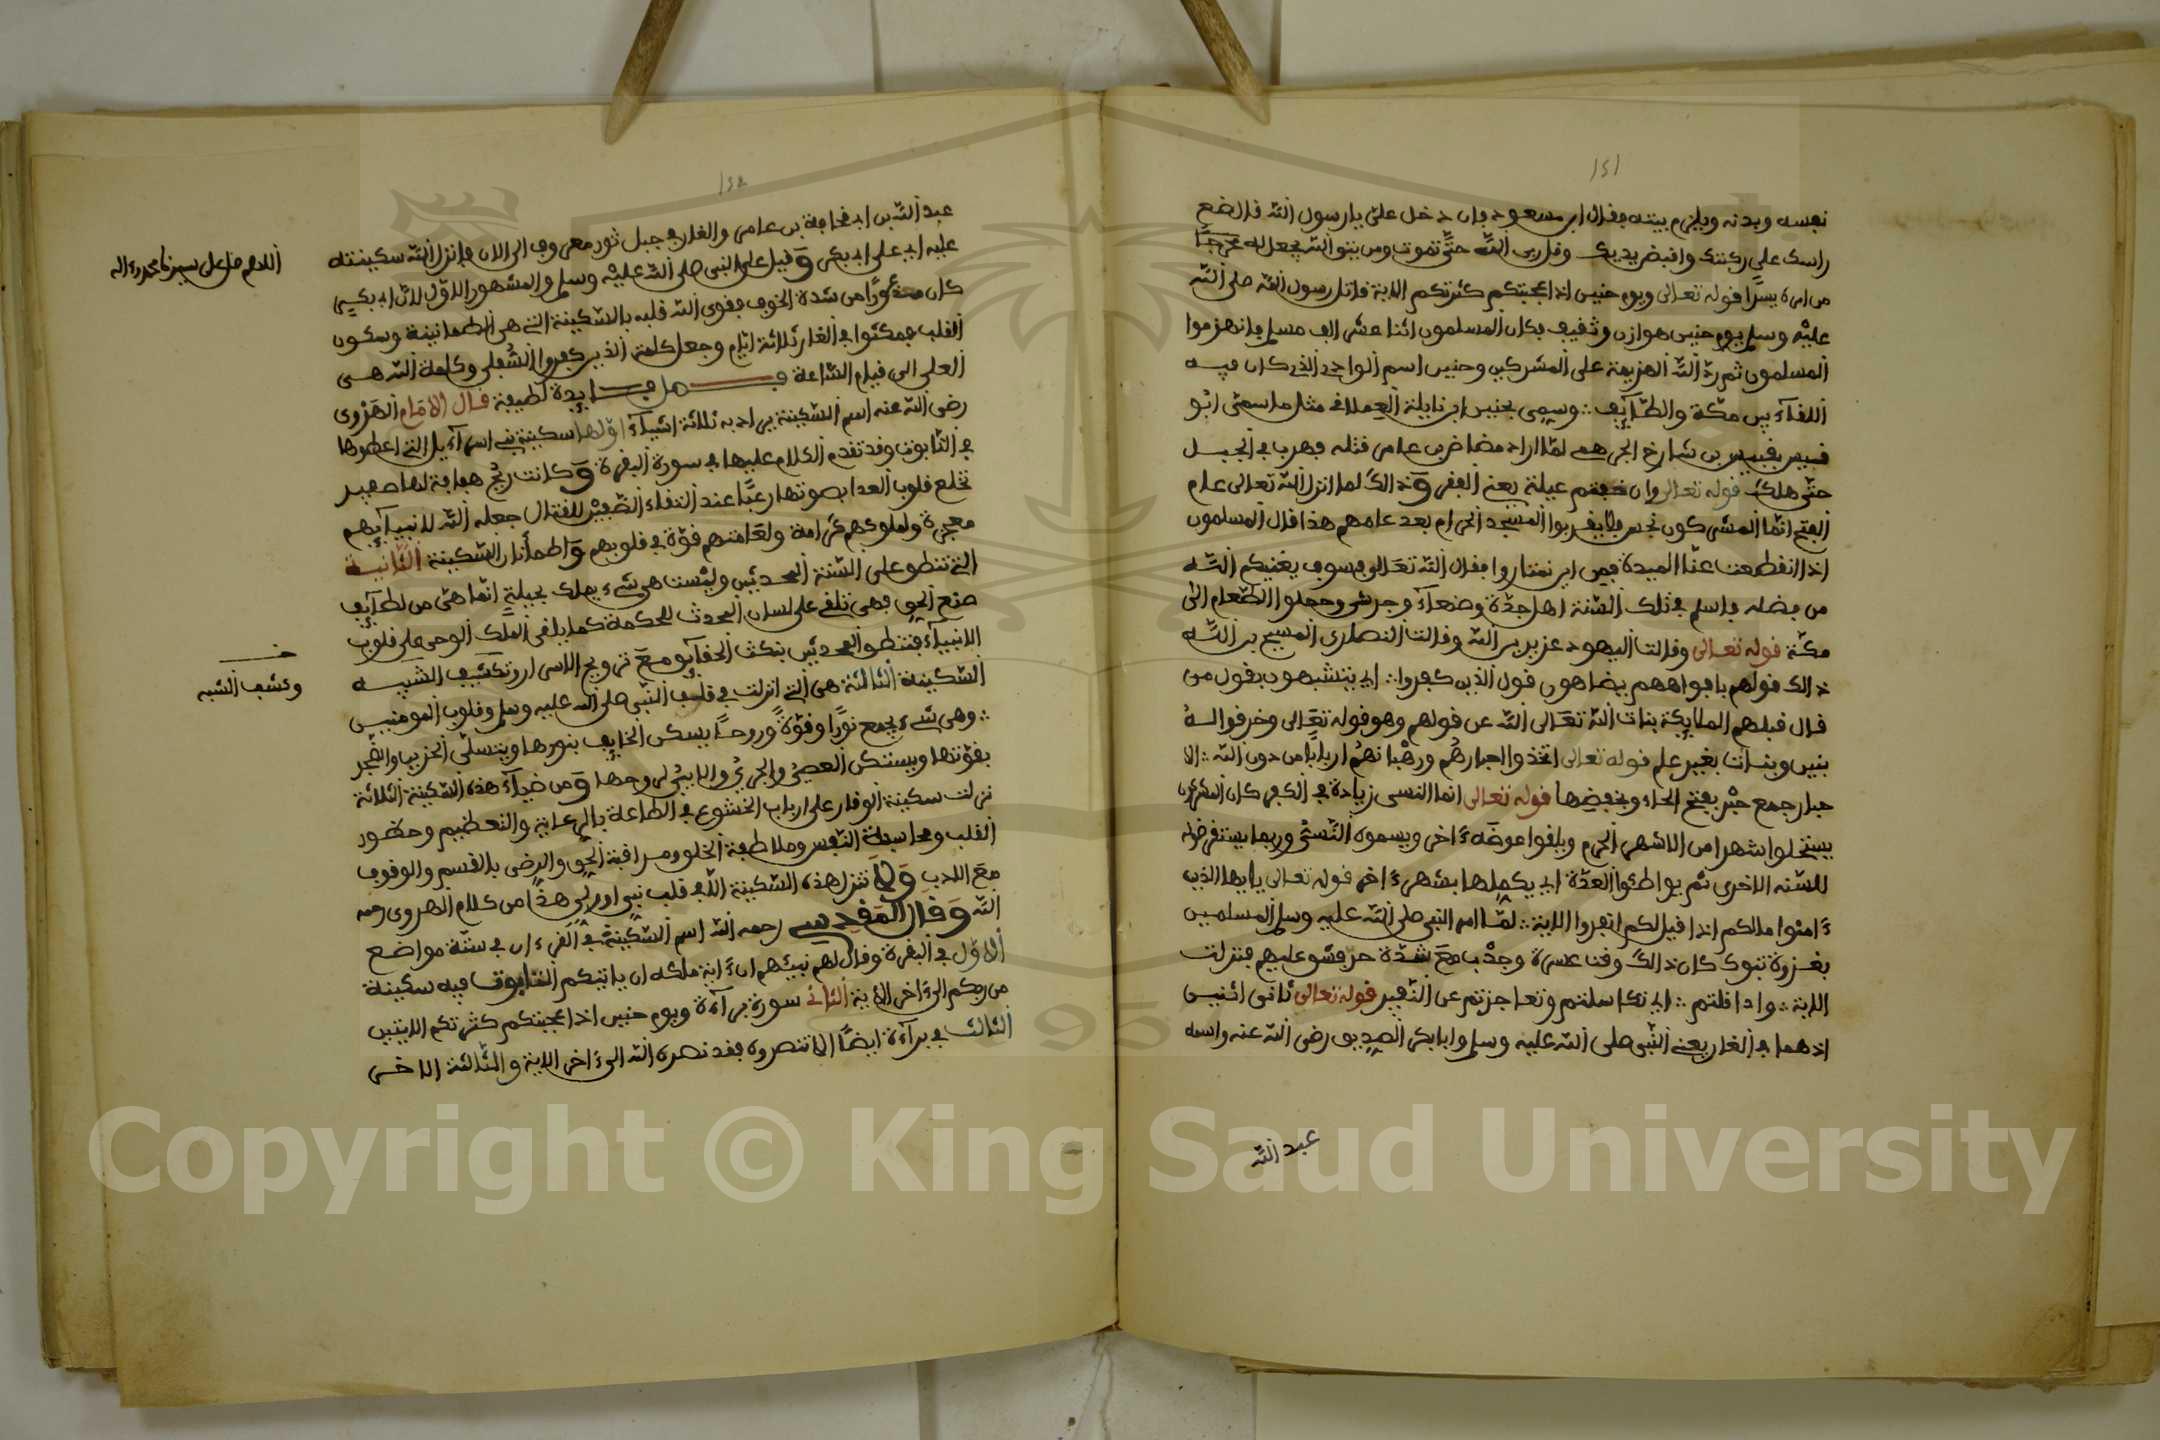 ١٤١
نفسه وبدنه ويلزم بيته فقال ابن مسعود فان دخل علي يا رسول الله قال ضع
راسك على ركبتك واقبض يديك وقل ربي الله حتى تموت ومن يتق الله يجعل له مخرجا
من امره يسرا قوله تعالى ويوم حنين اذ اعجبتكم كثرتكم الاية قاتل رسول الله صلى الله
عليه وسلم يوم حنين هوازن وثقيف فكان المسلمون اثنا عشر الف مسلم فانهزموا
المسلمون ثم رد الله الهزيمة على المشركين وحنين اسم الوادي الذي كان فيه
اللقاء بين مكة والطائف وسمي بحنين ابن نايلة العملاقي مثل ما سمي ابو
قبيس بقبيس بن شارخ الجرهمي لما اراد مضاض بن عامر قتله فهرب في الجبل
حتى هلك قوله تعالى وان خفتم عيلة يعني الفقر وذالك لما انزل الله تعالى عام
الفتح انما المشركون نجس فلا يقربوا المسجد الحرام بعد عامهم هذا قال المسلمون
اذا انقطعت عنا الميرة فمن اين نمتاروا فقال الله تعالى فسوف يغنيكم الله
من فضله فاسلم في تلك السنة اهل جدة وصنعاء وجرش وحملوا الطعام الى
مكة قوله تعالى وقالت اليهود عزير بن الله وقالت النصارى المسيح بن الله
ذالك قولهم بافواههم يضاهون قول الذين كفروا اي يتشبهون بقول من
قال قبلهم الملايكة بنات الله تعالى الله عن قولهم وهو قوله تعالى وخرقوا له
بنين وبنات بغير علم قوله تعالى اتخذوا احبارهم ورهبانهم اربابا من دون الله الا
حبار جمع حبر بفتح الحاء وبخفضها قوله تعالى انما النسى زيادة في الكفر كان المشركون
يستحلوا شهرا من الاشهر الحرم ويلقوا عوضه ءاخر ويسموه النسئ وربما يستقرضوه
للسنه الاخرى ثم يواطئوا العدة اي يكملها بشهر ءاخر قوله تعالى يا ايها الذين
ءامنوا مالكم اذا قيل لكم انفروا الاية لما امر النبي صلى الله عليه وسلم المسلمين
بغزوة تبوك كان ذالك وقت عسرة وجدب مع شدة حر فشق عليهم فنزلت
الاية واداقلتم اي تكاسلتم وتعاجزتم عن النفير قوله تعالى ثاني اثنين
اذ هما في الغار يعني النبي صلى الله عليه وسلم وابا بكر الصديق رضي الله عنه واسمه
عبد الله
١٤٢
عبد الله بن ابي قحافة بن عامر والغار في جبل ثور معروف الى الان فانزل الله سكينته
عليه اي على ابي بكر وقيل على النبي صلى الله عليه وسلم والمشهور الاول لان ابي بكر
كان من شدة الخوف فقوى الله قلبه بالسكينة التي هي الطمانينة وسكون
القلب فمكثوا في الغار ثلاثة ايام وجعل كلمة الذين كفروا السفلى وكلمة الله هي
العلي الى قيام الساعة فصل فايدة لطيفة قال الامام الهروى
رضي الله عنه اسم السكينة يراد به ثلاثة اشياء اولها سكينة بني اسرآءيل التي اعطوها
في التابوت وقد تقدم الكلام عليها في سورة البقرة وكانت ريح هفافة لها صفير
تخلع قلوب العدا بصوتها رعبا عند التقاء الصفين للقتال جعله الله لانبيآيهم
معجزة ولملوكهم كرامة ولعامتهم قوة في قلوبهم واطمأنان السكينة الثانية
التي تنطق على السنة المحدثين وليست هي شيء يملك بحيلة انما هي من لطآيف
صنع الحق فهي تلقي على لسان المحدث الحكمة كما يلقي الملك الوحي على قلوب
الانبيآء فتنطق المحدثين بنكث الحقآيق مع ترويح الاسرار وتكشيف الشبه
السكينة الثالثة هي التي انزلت في قلب النبي صلى الله عليه وسلم وقلوب المومنين
وهي شيء يجمع نورا وقوة وروحا يسكن الخايف بنورها ويتسلى الحزين والضجر
بقوتها ويستكن العصي والجري والابي لروحها ومن ضيآء هذه السكينة الثلاثة
نزلت سكينة الوقار على ارباب الخشوع في الطاعة بالرعاية والتعظيم وحضور
القلب ومحاسبة النفس وملاطفة الخلق ومراقبة الحق والرضى بالقسم والوقوف
مع الادب ولا تنزل هذه السكينة الا في قلب نبي او ولي هذا من كلام الهروي رحمه
الله وقال المقدسي رحمه الله اسم السكينة في القرءان في ستة مواضع
الاول في البقرة وقال لهم نبيئهم ان ءاية ملكه ان ياتيكم التابوت فيه سكينة
من ربكم الى ءاخر الاية الثاني سورة برآءة ويوم حنين اذ اعجبتكم كثرتكم الايتين
الثالث في برآءة ايضا الا تنصروه فقد نصره الله الى ءاخر الاية والثالثة الاخر
اللهم صل على سيدنا محمد وءاله
خـ
وكشف الشبه
Copyright © King Saud University